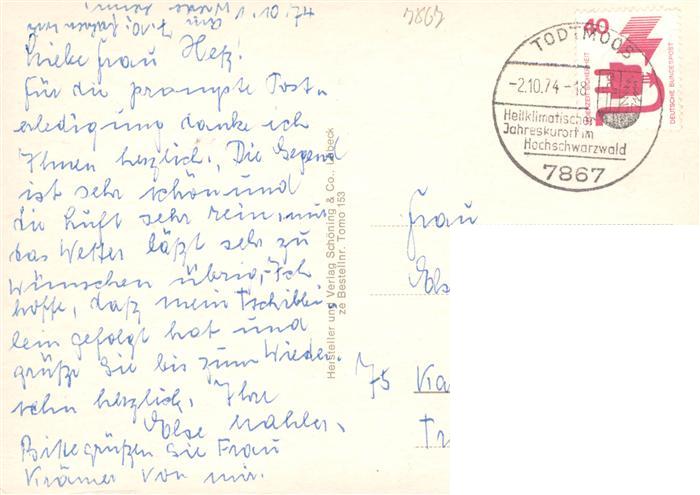 1.10.74
Liebe Frau Heß!
für die prompte Post-
erledigung danke ich
Ihnen herzlich. Die Gegend
ist sehr schön und
die Luft sehr rein, nur
das Wetter läßt sehr zu
wünschen übrig, Ich
hoffe, daß mein
lein gefolgt hat und
grüße Sie bis zum Wieder-
sehn herzlich, Ihre
Else Mahler.
Bitte grüßen Sie Frau
Krämer von mir.
Hersteller und Verlag Schöning & Co., Lübeck
ze Bestellnr. Tomo 153
7867
TODTMOOS
-2.10.74-18
Heilklimatischer
Jahreskurort im
Hochschwarzwald
7867
40
DEUTSCHE BUNDESPOST
Frau
Else
75 Ka
Tr